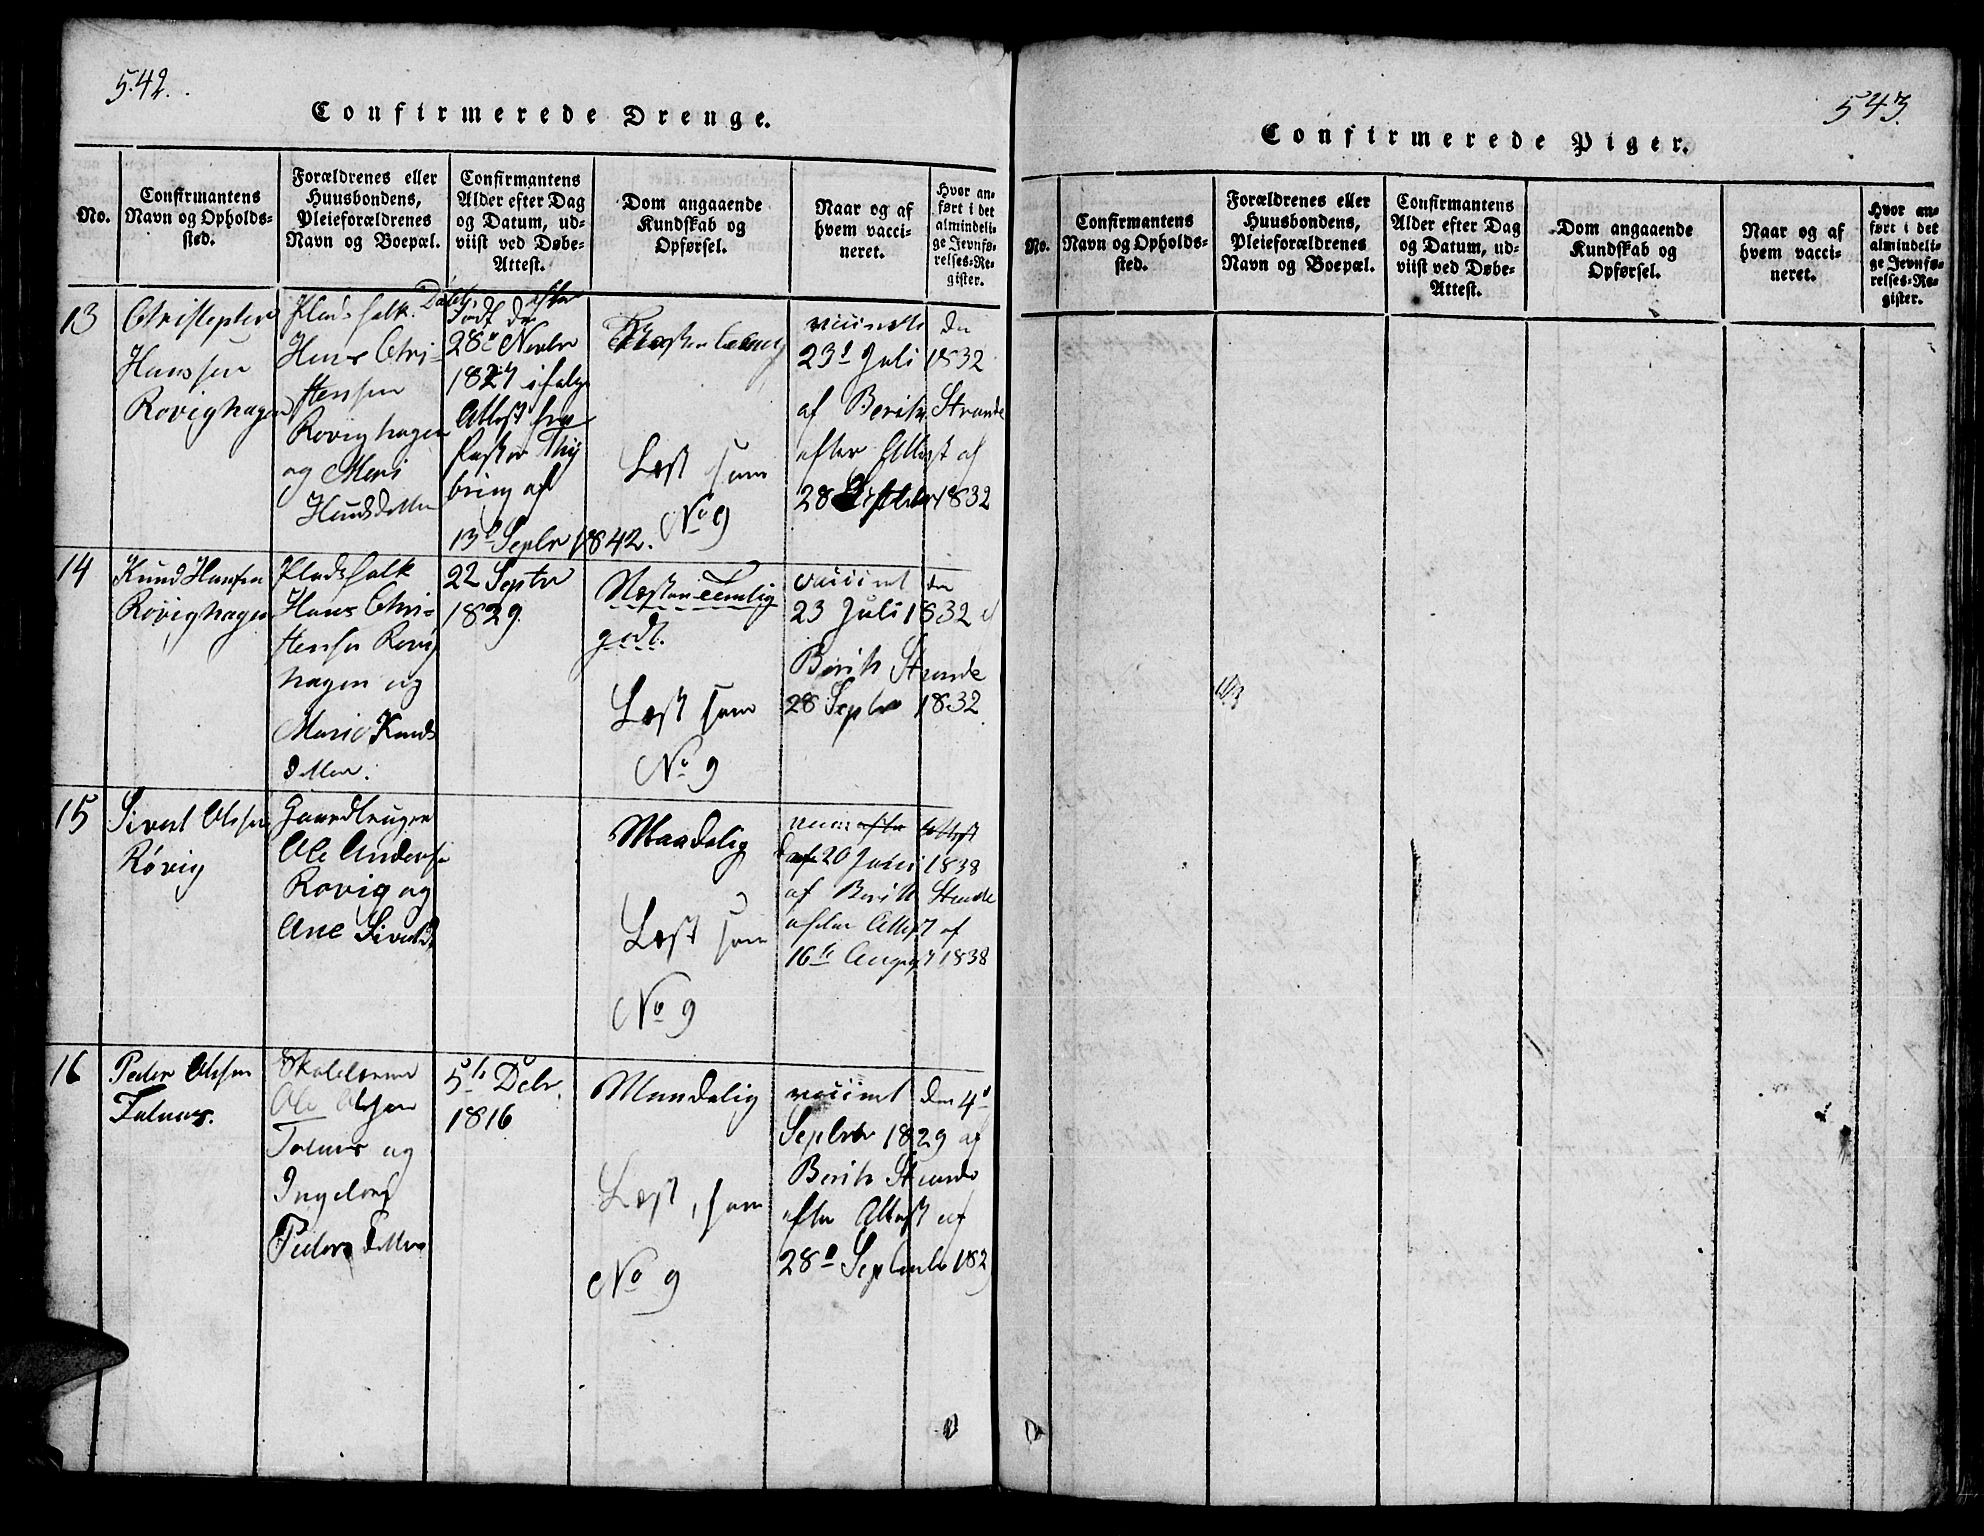 542.
Confirmerede Drenge.
No.
Confirmantens
Navn og Opholds-
sted.
Forældrenes eller
Huusbondens,
Pleieforældrenes
Navn og Boepæl.
Confirmantens
Alder efter Dag
og Datum, ud-
viist ved Døbe-
Attest.
Dom angaaende
Kundskab og
Opførsel.
Naar og af
hvem vacci-
neret.
Hvor an-
ført i det
almindeli-
ge Jevnfø-
relses-Re-
gister.
13
Christopher
Hanssen
Rovighagen
Pladsfolk
Hans Chri-
stensen
Rovighagen
og Mari
Knudsdatter
Født d
28de Novbr
1827 ifølge
Attest fra
Pastor Thy
bring af
13de Septbr 1842.
Læst som
No 9
vaccineret den
23d Juli 1832
af Berith Strande
efter Attest af
28 Septbr 1832
14
Knud Hansen
Røvighagen
Pladsfolk
Hans Chri-
stensen Rovig
hagen og
Marie Knuds
datter.
22 Septbr
1829.
Næsten temlig
godt.
Læst som
No 9
vaccineret den
23 Juli 1832 af
Berith Strande
28 Septbr 1832.
15
Sivert Olsen
Røvig
Gaardbruger
Ole Anders
Rovig og
Ane Siverts
Maadelig
Læst som
No 9
20 Juni 1838
af Berith Strande
efter Attest af
16de August 1838
16
Peder Olsen
Talnæs.
Skoleлærer
Ole Olsen
Talnæs og
Ingeborg
Peders datter
5te Debr.
1816
Maadelig
Læst, som
No 9
vaccineret den 4de
Septbr 1829 af
Berith Strande
efter Attest af
28de Septembr 182
543.
Confirmerede Piger.
No.
Confirmantens
Navn og Opholds-
sted.
Forældrenes eller
Huusbondens,
Pleieforældrenes
Navn og Boepæl.
Confirmantens
Alder efter Dag
og Datum, ud-
viist ved Døbe-
Attest.
Dom angaaende
Kundskab og
Opførsel.
Naar og af
hvem vacci-
neret.
Hvor an-
ført i det
almindeli-
ge Jevnfø-
relses-Re-
gister.